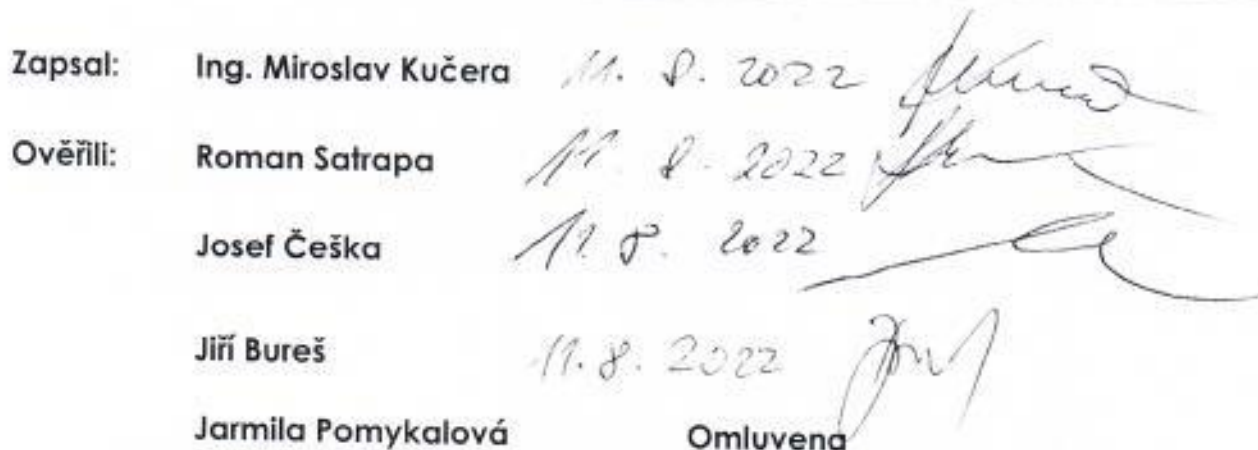 Zapsal: Ing. Miroslav Kučera 11. 8. 2022
Ověřili: Roman Satrapa 11. 8. 2022
Josef Češka 11. 8. 2022
Jiří Bureš 11. 8. 2022
Jarmila Pomykalová Omluvena